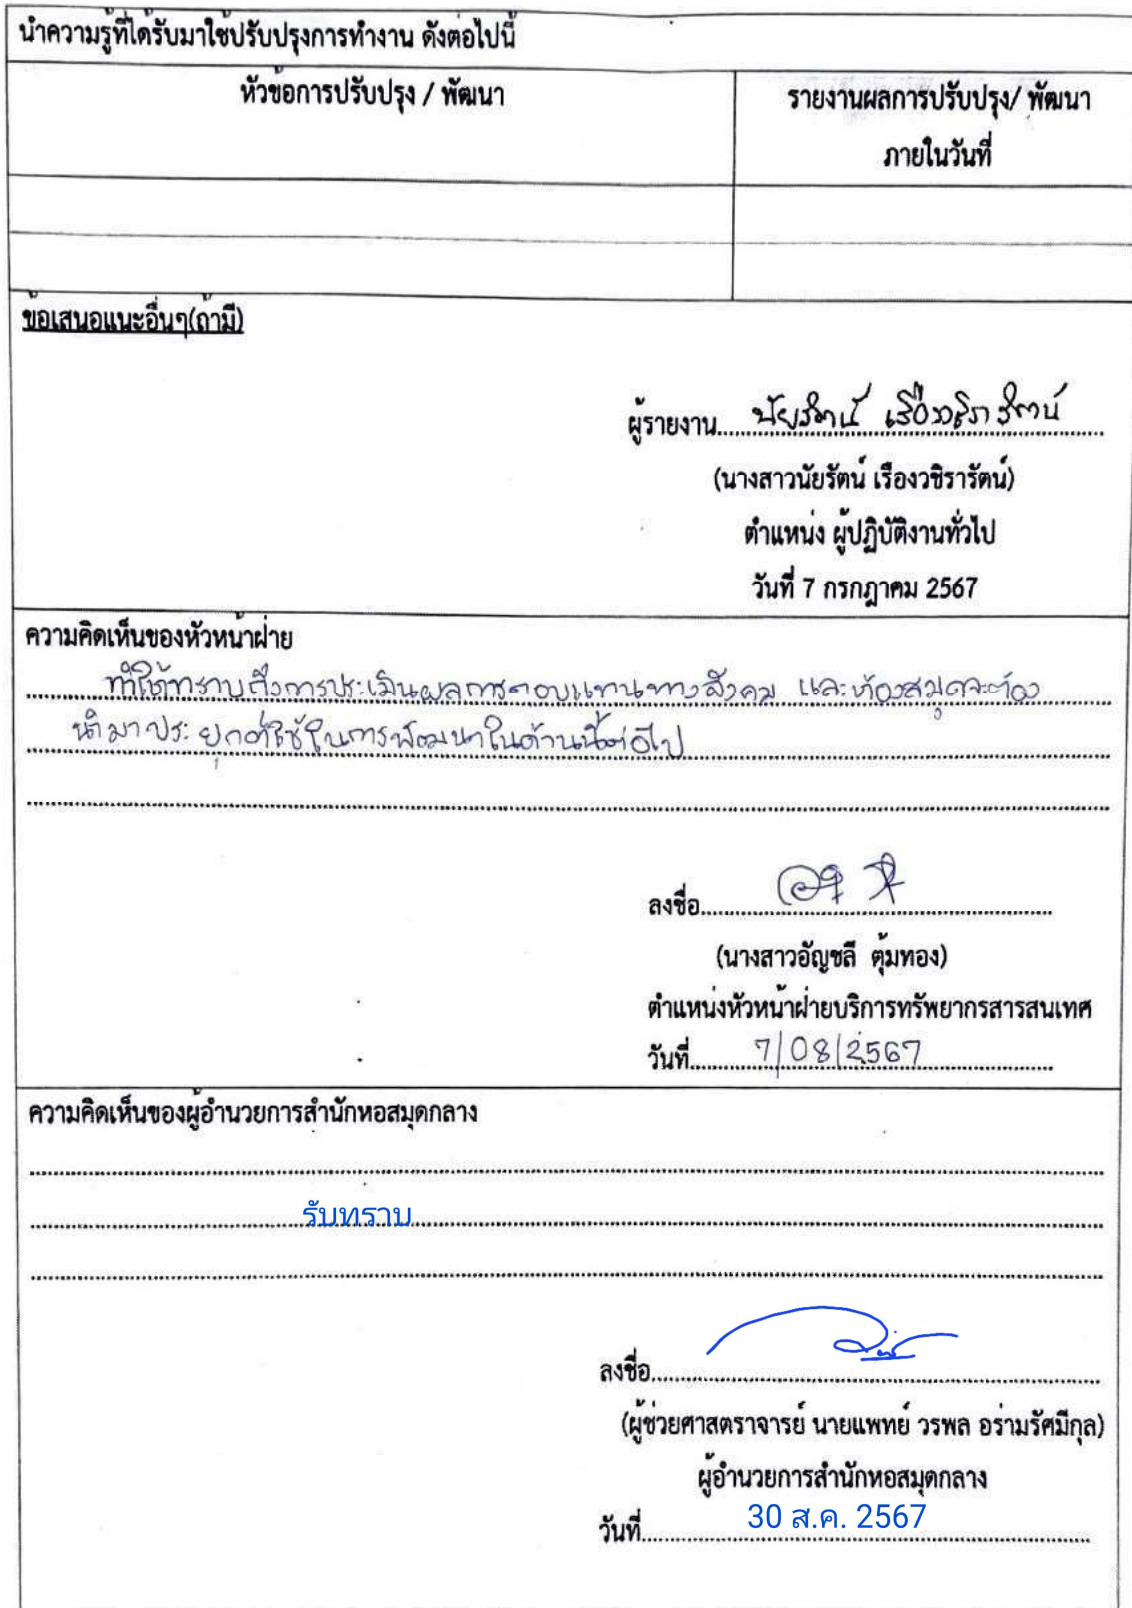 นำความรู้ที่ได้รับมาใช้ปรับปรุงการทำงาน ดังต่อไปนี้
หัวข้อการปรับปรุง / พัฒนา
รายงานผลการปรับปรุง/ พัฒนา
ภายในวันที่
ข้อเสนอแนะอื่นๆ(ถ้ามี)
ผู้รายงาน นัยรัตน์ เรืองวชิรารัตน์
(นางสาวนัยรัตน์ เรืองวชิรารัตน์)
ตำแหน่ง ผู้ปฏิบัติงานทั่วไป
วันที่ 7 กรกฎาคม 2567
ความคิดเห็นของหัวหน้าฝ่าย
ทำให้ทราบถึงการประเมินผลการตอบแทนทางสังคม และห้องสมุดจะต้อง
นำมาประยุกต์ใช้ในการพัฒนาในด้านนี้ต่อไป
ลงชื่อ
(นางสาวอัญชลี ตุ้มทอง)
ตำแหน่งหัวหน้าฝ่ายบริการทรัพยากรสารสนเทศ
วันที่ 7/08/2567
ความคิดเห็นของผู้อำนวยการสำนักหอสมุดกลาง
รับทราบ
ลงชื่อ
(ผู้ช่วยศาสตราจารย์ นายแพทย์ วรพล อร่ามรัศมีกุล)
ผู้อำนวยการสำนักหอสมุดกลาง
วันที่ 30 ส.ค. 2567